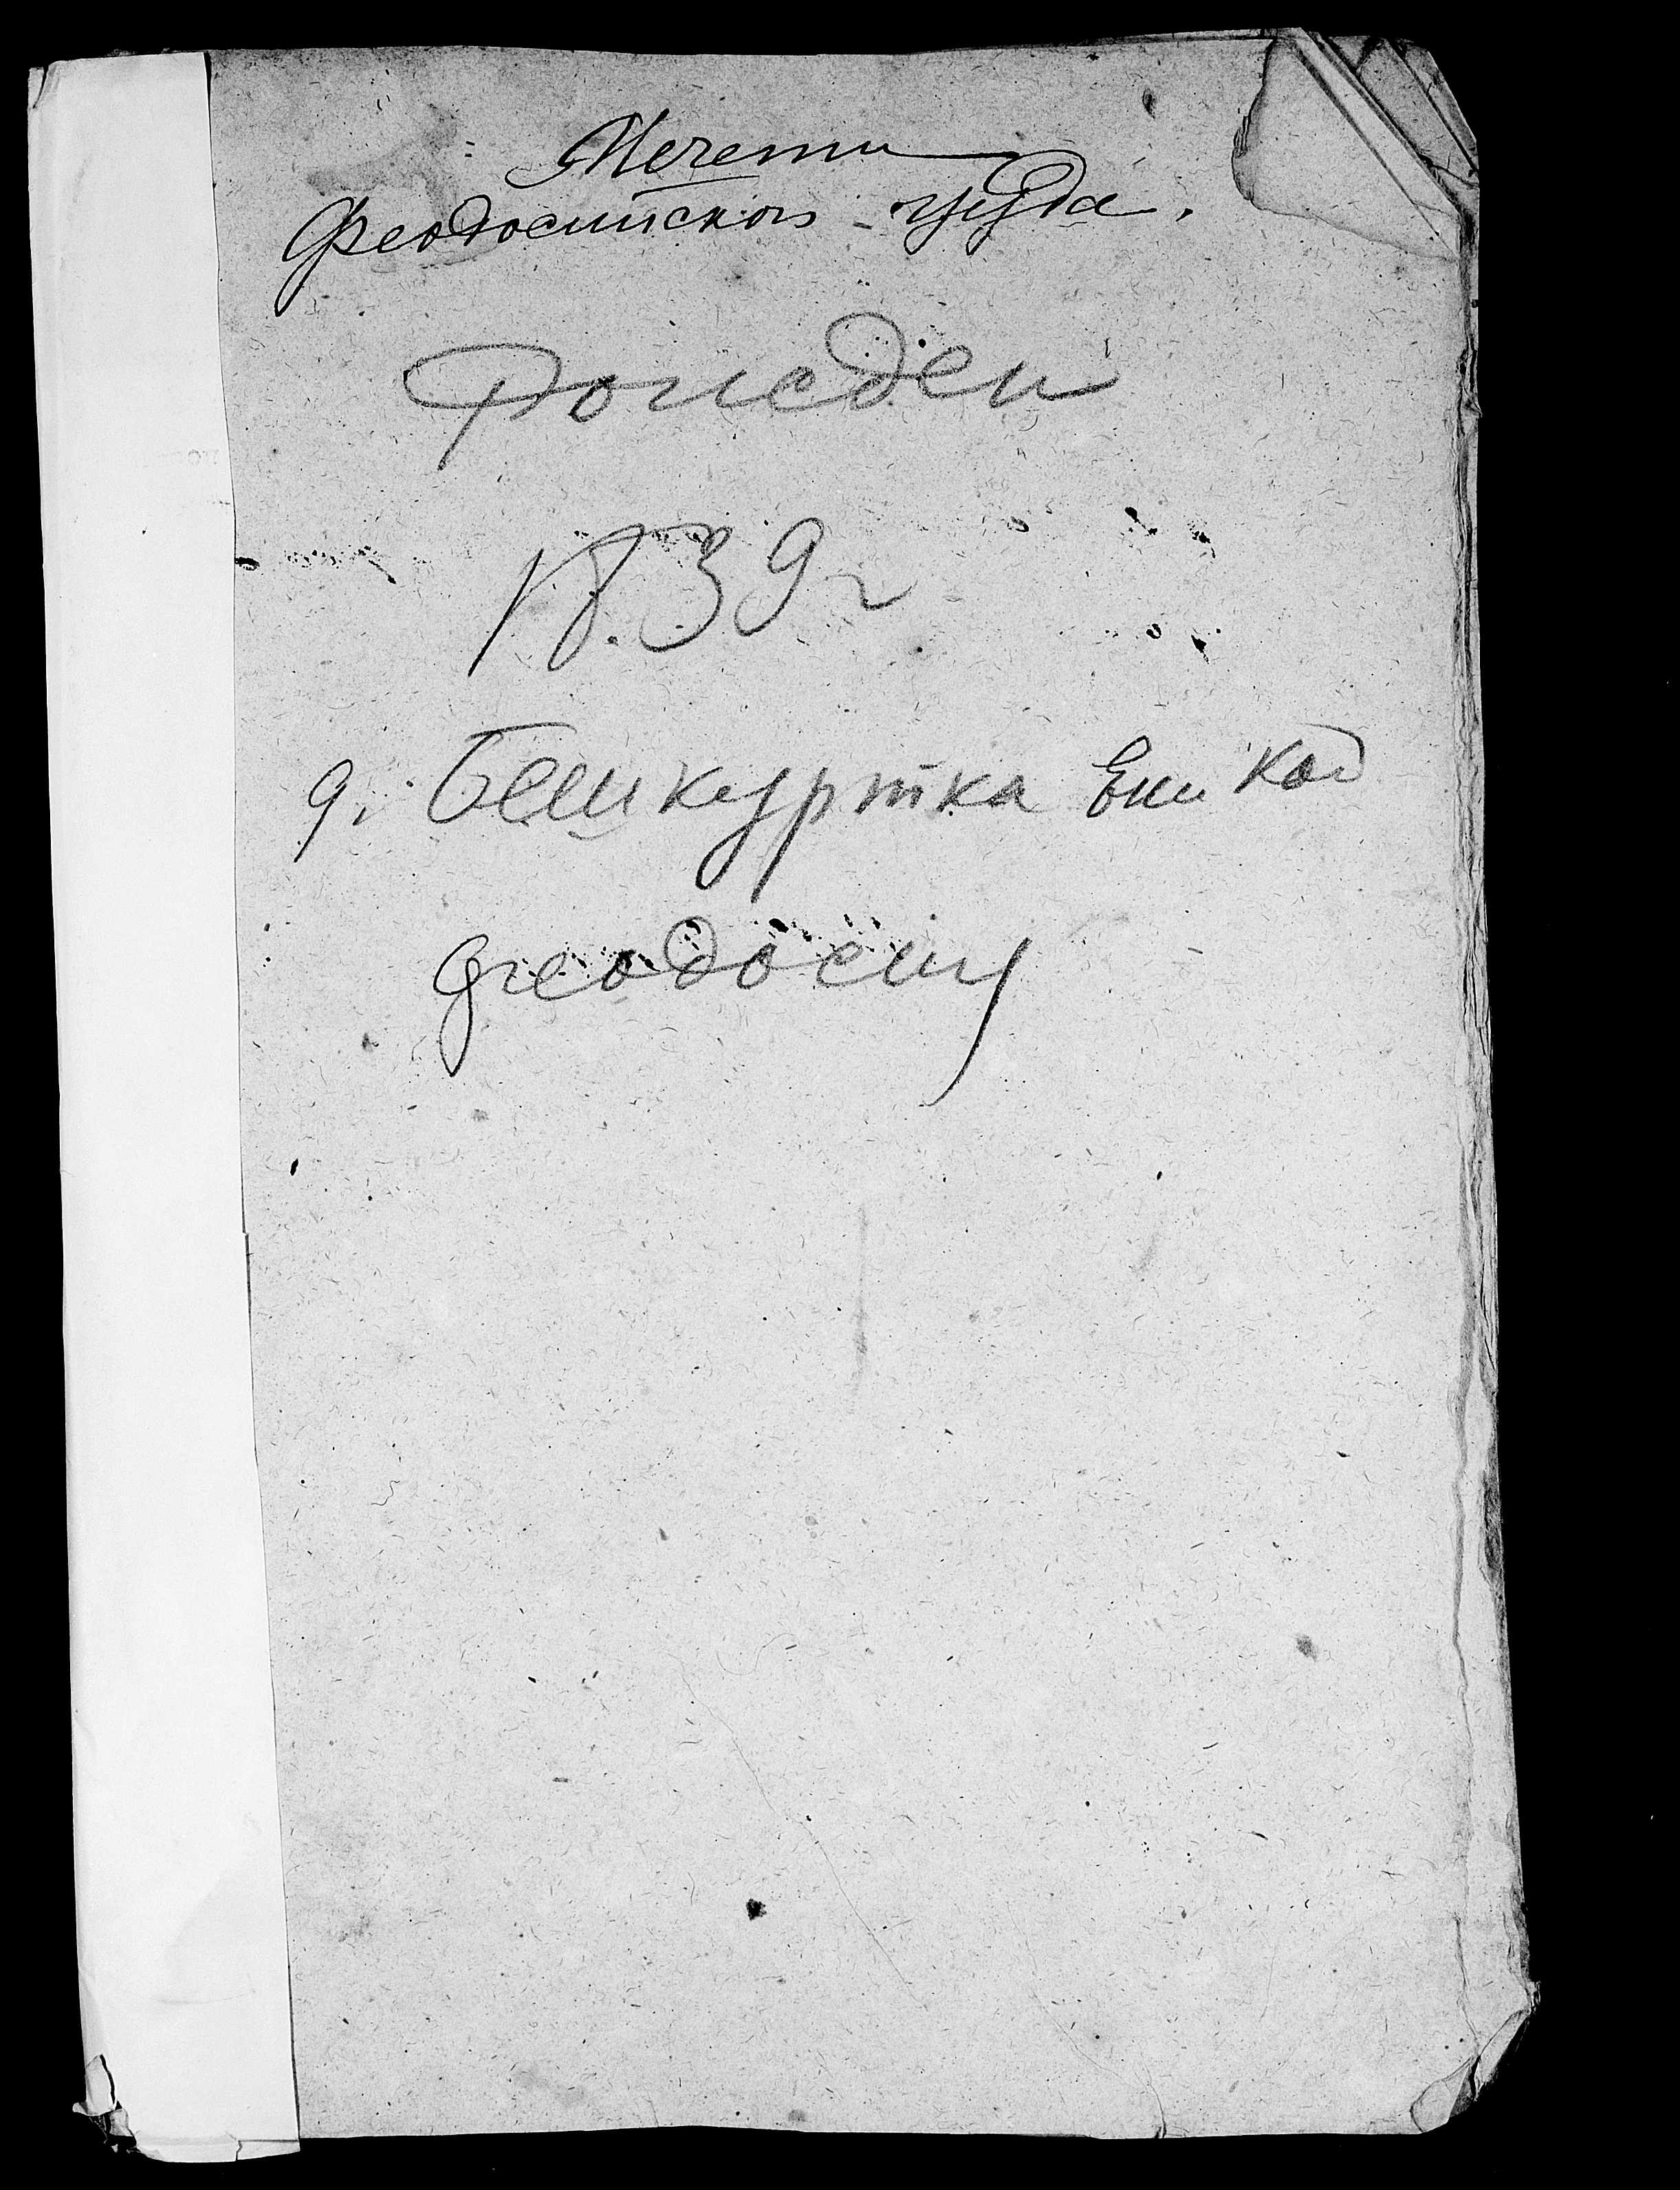 Мечети
Феодосийскоп уезда.
Рожеден
1839 г
9. Бешкуртка Ени Кой
Феодосия